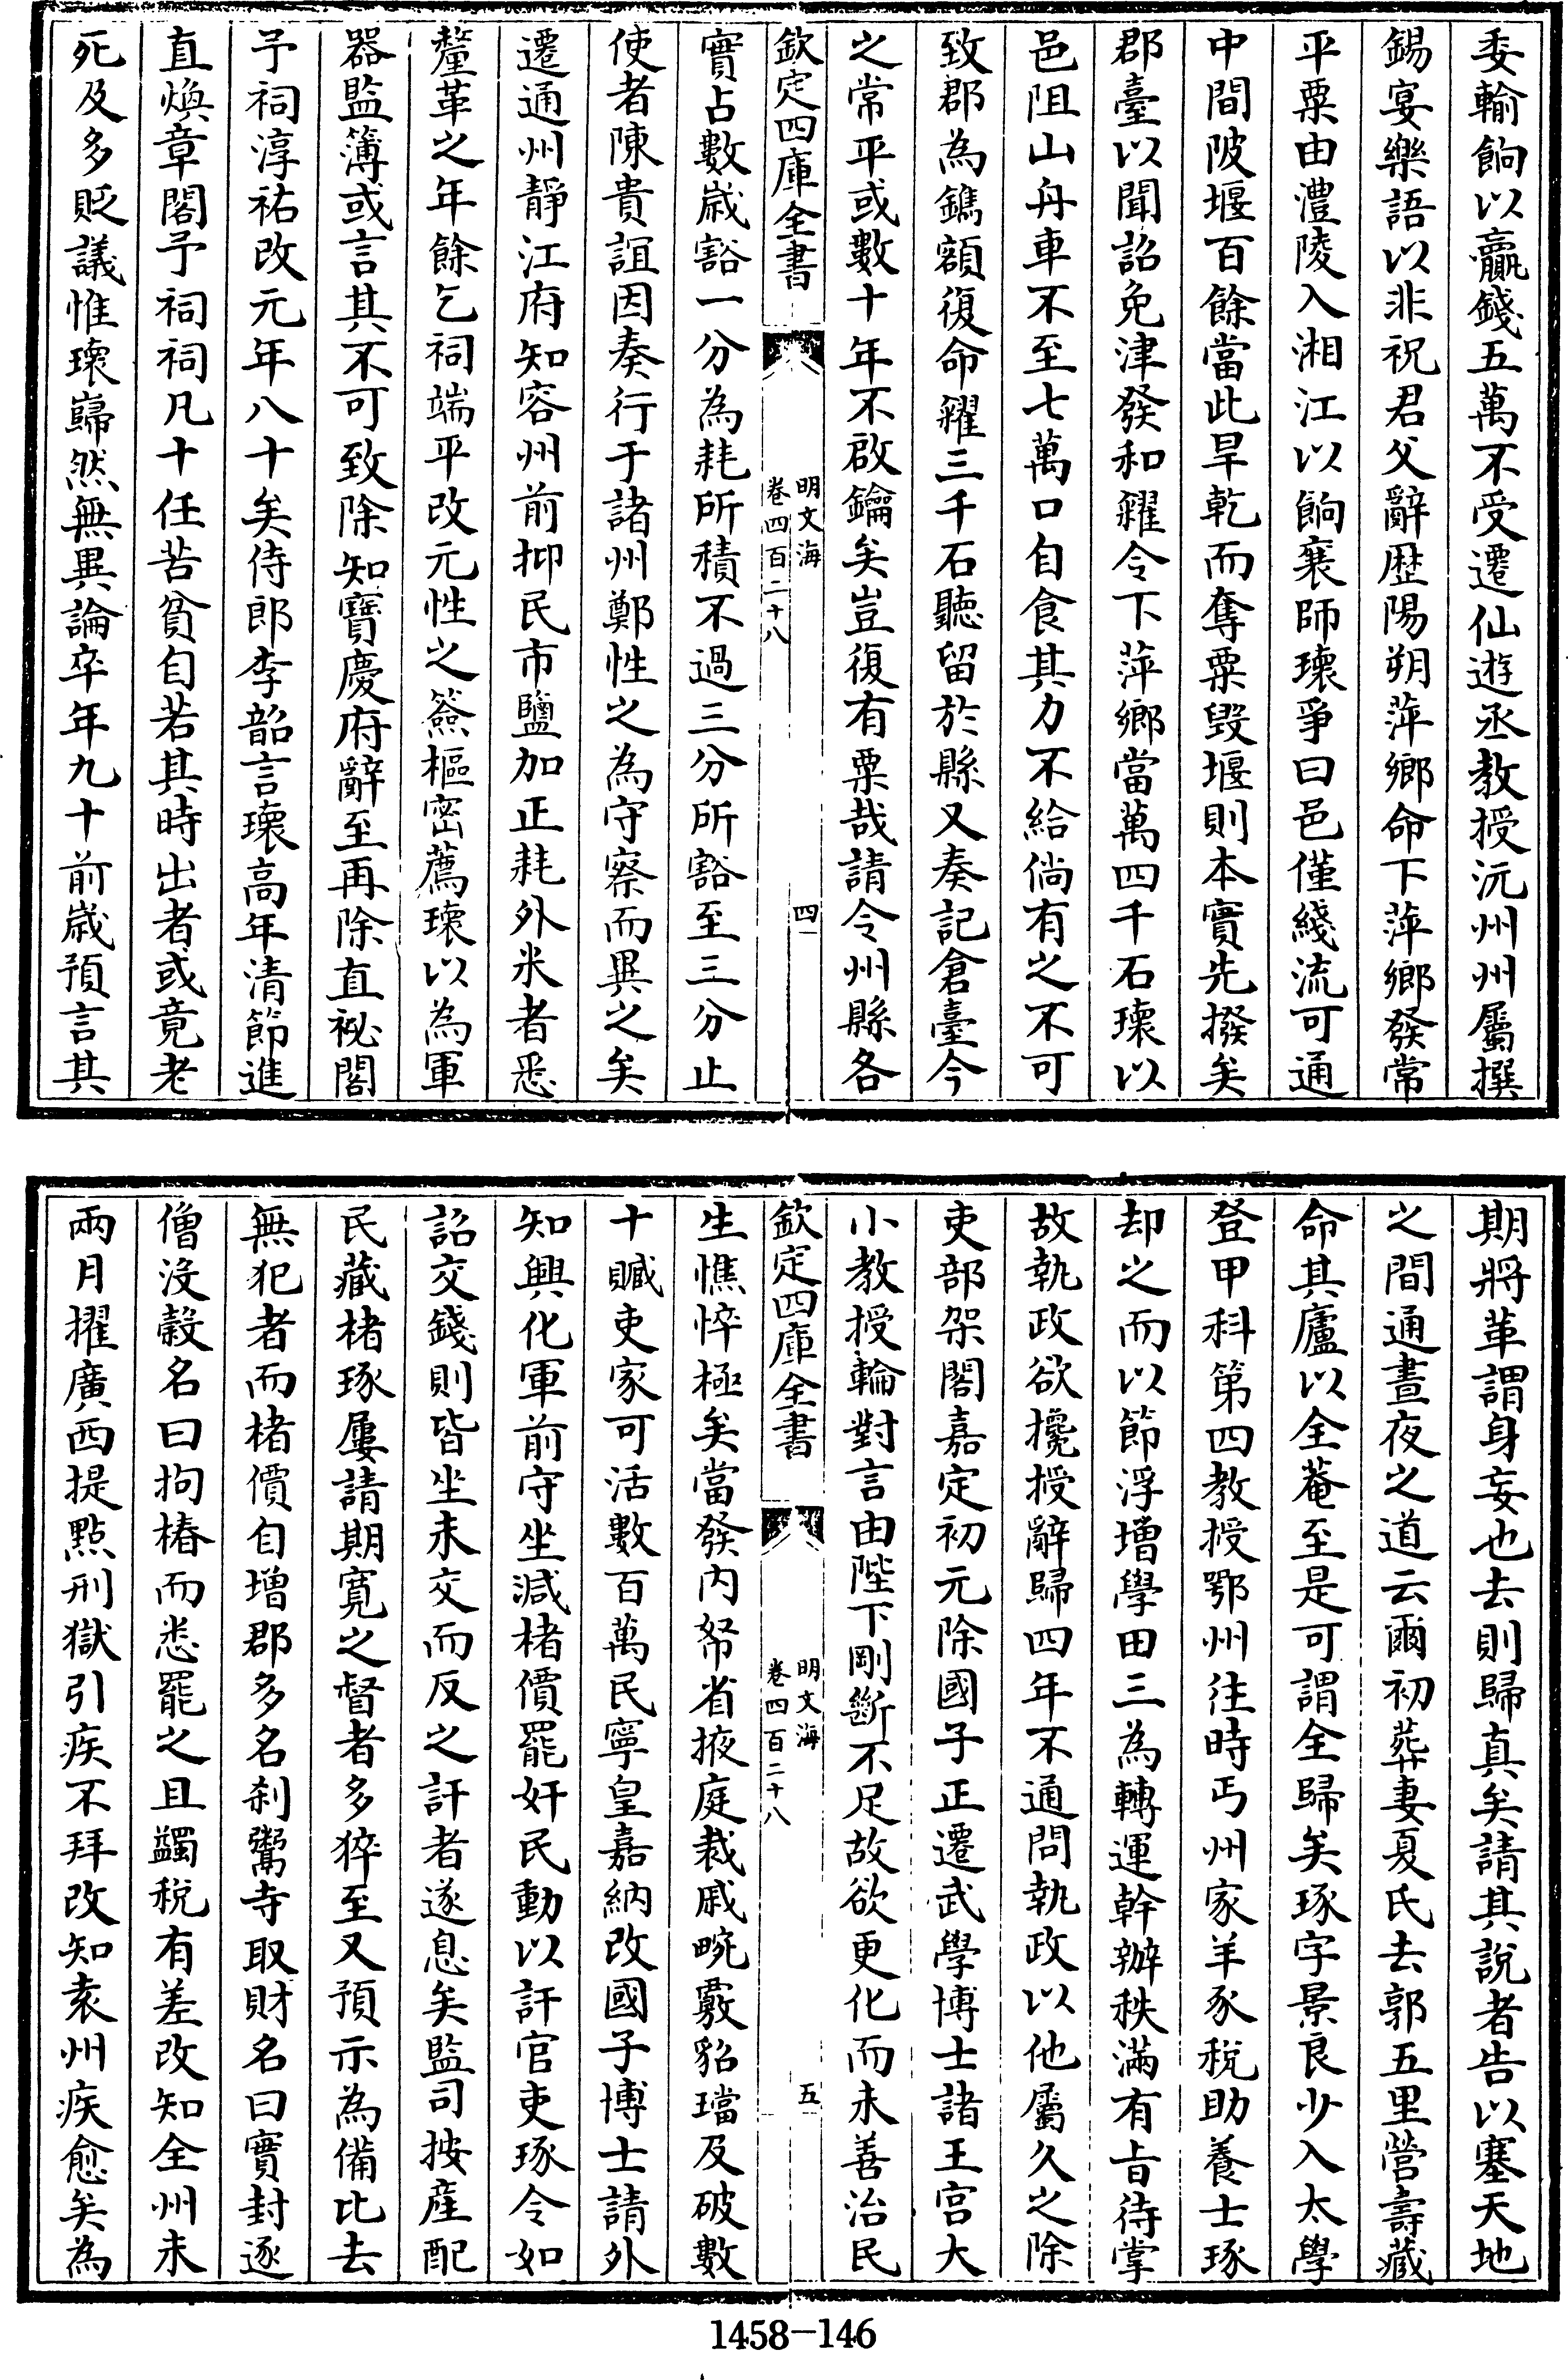 委輸餉以羸錢五萬不受遷仙遊丞教授沅州州屬撰
錫宴樂語以非祝君父辭歴陽朔萍鄉命下萍鄉發常
平粟由澧陵入湘江以餉襄師瓌爭曰邑僅綫流可通
中間陂堰百餘當此旱乾而奪粟毀堰則本實先撥矣
郡臺以聞詔免津發和糴令下萍鄉當萬四千石瓌以
邑阻山舟車不至七萬口自食其力不給倘有之不可
致郡為鐫額復命糴三千石聽留於縣又奏記倉臺今
之常平或數十年不啟鑰矣豈復有粟哉請令州縣各
欽定四庫全書
明文海
卷四百二十八
四
實占數嵗豁一分為耗所積不過三分所豁至三分止
使者陳貴誼因奏行于諸州鄭性之為守察而異之矣
遷通州靜江府知容州前抑民市鹽加正耗外米者悉
釐革之年餘乞祠端平改元性之簽樞密薦瓌以為軍
器監簿或言其不可致除知寶慶府辭至再除直祕閣
予祠淳祐改元年八十矣侍郎李韶言瓌高年清節進
直煥章閣予祠祠凡十任苦貧自若其時出者或竟老
死及多貶議惟瓌巋然無異論卒年九十前嵗預言其
期將革謂身妄也去則歸真矣請其說者告以塞天地
之間通晝夜之道云爾初葬妻夏氏去郭五里營壽藏
命其廬以全菴至是可謂全歸矣琢字景良少入太學
登甲科第四教授鄂州徃時丐州家羊豕稅助養士琢
却之而以節浮增學田三為轉運幹辦秩滿有旨待掌
故執政欲攙授辭歸四年不通問執政以他屬久之除
吏部架閣嘉定初元除國子正遷武學博士諸王宫大
小教授輪對言由陛下剛斷不足故欲更化而未善治民
欽定四庫全書
明文海
卷四百二十八
五
生憔悴極矣當發内帑省掖庭裁戚畹覈貂璫及破數
十贓吏家可活數百萬民寧皇嘉納改國子博士請外
知興化軍前守坐減楮價罷奸民動以訐官吏琢令如
詔交錢則皆坐未交而反之訐者遂息矣監司按産配
民藏楮琢屢請期寛之督者多猝至又預示為備比去
無犯者而楮價自增郡多名刹鬻寺取財名曰實封逐
僧沒穀名曰拘樁而悉罷之且蠲稅有差改知全州未
兩月擢廣西提點刑獄引疾不拜改知袁州疾愈矣為
1458-146